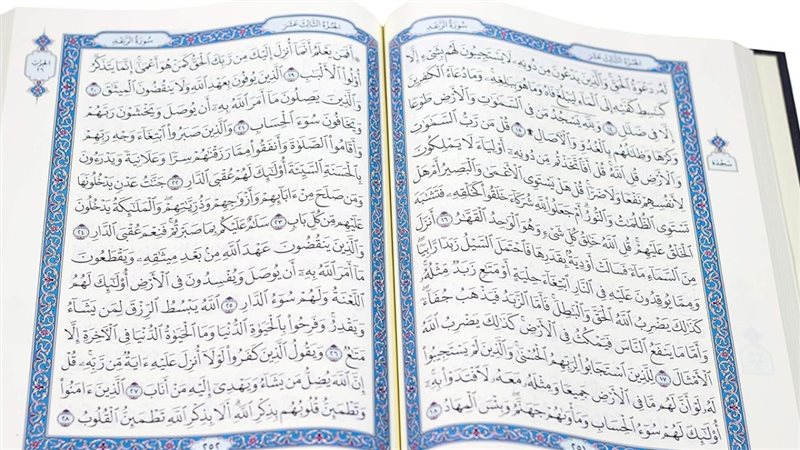 الجزء الثالث عشر
سورة الرعد
لَهُۥ دَعْوَةُ ٱلْحَقِّ وَٱلَّذِينَ يَدْعُونَ مِن دُونِهِۦ لَا يَسْتَجِيبُونَ لَهُم بِشَىْءٍ إِلَّا
كَبَٰسِطِ كَفَّيْهِ إِلَى ٱلْمَآءِ لِيَبْلُغَ فَاهُ وَمَا هُوَ بِبَٰلِغِهِۦ وَمَا دُعَآءُ ٱلْكَٰفِرِينَ
إِلَّا فِى ضَلَٰلٍ ١٤ وَلِلَّهِ يَسْجُدُ مَن فِى ٱلسَّمَٰوَٰتِ وَٱلْأَرْضِ طَوْعًا
وَكَرْهًا وَظِلَٰلُهُم بِٱلْغُدُوِّ وَٱلْءَاصَالِ ۩ ١٥ قُلْ مَن رَّبُّ ٱلسَّمَٰوَٰتِ
وَٱلْأَرْضِ قُلِ ٱللَّهُ قُلْ أَفَٱتَّخَذْتُم مِّن دُونِهِۦٓ أَوْلِيَآءَ لَا يَمْلِكُونَ
لِأَنفُسِهِمْ نَفْعًا وَلَا ضَرًّا قُلْ هَلْ يَسْتَوِى ٱلْأَعْمَىٰ وَٱلْبَصِيرُ أَمْ هَلْ
تَسْتَوِى ٱلظُّلُمَٰتُ وَٱلنُّورُ أَمْ جَعَلُوا۟ لِلَّهِ شُرَكَآءَ خَلَقُوا۟ كَخَلْقِهِۦ فَتَشَٰبَهَ
ٱلْخَلْقُ عَلَيْهِمْ قُلِ ٱللَّهُ خَٰلِقُ كُلِّ شَىْءٍ وَهُوَ ٱلْوَٰحِدُ ٱلْقَهَّٰرُ ١٦ أَنزَلَ
مِنَ ٱلسَّمَآءِ مَآءً فَسَالَتْ أَوْدِيَةٌۢ بِقَدَرِهَا فَٱحْتَمَلَ ٱلسَّيْلُ زَبَدًا رَّابِيًا
وَمِمَّا يُوقِدُونَ عَلَيْهِ فِى ٱلنَّارِ ٱبْتِغَآءَ حِلْيَةٍ أَوْ مَتَٰعٍ زَبَدٌ مِّثْلُهُۥ
كَذَٰلِكَ يَضْرِبُ ٱللَّهُ ٱلْحَقَّ وَٱلْبَٰطِلَ فَأَمَّا ٱلزَّبَدُ فَيَذْهَبُ جُفَآءً
وَأَمَّا مَا يَنفَعُ ٱلنَّاسَ فَيَمْكُثُ فِى ٱلْأَرْضِ كَذَٰلِكَ يَضْرِبُ ٱللَّهُ
ٱلْأَمْثَالَ ١٧ لِلَّذِينَ ٱسْتَجَابُوا۟ لِرَبِّهِمُ ٱلْحُسْنَىٰ وَٱلَّذِينَ لَمْ يَسْتَجِيبُوا۟
لَهُۥ لَوْ أَنَّ لَهُم مَّا فِى ٱلْأَرْضِ جَمِيعًا وَمِثْلَهُۥ مَعَهُۥ لَٱفْتَدَوْا۟ بِهِۦٓ
أُو۟لَٰٓئِكَ لَهُمْ سُوٓءُ ٱلْحِسَابِ وَمَأْوَىٰهُمْ جَهَنَّمُ وَبِئْسَ ٱلْمِهَادُ ١٨
سجدة
٢٥١
سورة الرعد
الجزء الثالث عشر
الحزب
أَفَمَن يَعْلَمُ أَنَّمَآ أُنزِلَ إِلَيْكَ مِن رَّبِّكَ ٱلْحَقُّ كَمَنْ هُوَ أَعْمَىٰٓ إِنَّمَا يَتَذَكَّرُ
أُو۟لُوا۟ ٱلْأَلْبَٰبِ ١٩ ٱلَّذِينَ يُوفُونَ بِعَهْدِ ٱللَّهِ وَلَا يَنقُضُونَ ٱلْمِيثَٰقَ ٢٠
وَٱلَّذِينَ يَصِلُونَ مَآ أَمَرَ ٱللَّهُ بِهِۦٓ أَن يُوصَلَ وَيَخْشَوْنَ رَبَّهُمْ
وَيَخَافُونَ سُوٓءَ ٱلْحِسَابِ ٢١ وَٱلَّذِينَ صَبَرُوا۟ ٱبْتِغَآءَ وَجْهِ رَبِّهِمْ
وَأَقَامُوا۟ ٱلصَّلَوٰةَ وَأَنفَقُوا۟ مِمَّا رَزَقْنَٰهُمْ سِرًّا وَعَلَانِيَةً وَيَدْرَءُونَ
بِٱلْحَسَنَةِ ٱلسَّيِّئَةَ أُو۟لَٰٓئِكَ لَهُمْ عُقْبَى ٱلدَّارِ ٢٢ جَنَّٰتُ عَدْنٍ يَدْخُلُونَهَا
وَمَن صَلَحَ مِنْ ءَابَآئِهِمْ وَأَزْوَٰجِهِمْ وَذُرِّيَّٰتِهِمْ وَٱلْمَلَٰٓئِكَةُ يَدْخُلُونَ
عَلَيْهِم مِّن كُلِّ بَابٍ ٢٣ سَلَٰمٌ عَلَيْكُم بِمَا صَبَرْتُمْ فَنِعْمَ عُقْبَى ٱلدَّارِ ٢٤
وَٱلَّذِينَ يَنقُضُونَ عَهْدَ ٱللَّهِ مِنۢ بَعْدِ مِيثَٰقِهِۦ وَيَقْطَعُونَ
مَآ أَمَرَ ٱللَّهُ بِهِۦٓ أَن يُوصَلَ وَيُفْسِدُونَ فِى ٱلْأَرْضِ أُو۟لَٰٓئِكَ لَهُمُ
ٱللَّعْنَةُ وَلَهُمْ سُوٓءُ ٱلدَّارِ ٢٥ ٱللَّهُ يَبْسُطُ ٱلرِّزْقَ لِمَن يَشَآءُ
وَيَقْدِرُ وَفَرِحُوا۟ بِٱلْحَيَوٰةِ ٱلدُّنْيَا وَمَا ٱلْحَيَوٰةُ ٱلدُّنْيَا فِى ٱلْءَاخِرَةِ إِلَّا
مَتَٰعٌ ٢٦ وَيَقُولُ ٱلَّذِينَ كَفَرُوا۟ لَوْلَآ أُنزِلَ عَلَيْهِ ءَايَةٌ مِّن رَّبِّهِۦ قُلْ
إِنَّ ٱللَّهَ يُضِلُّ مَن يَشَآءُ وَيَهْدِىٓ إِلَيْهِ مَنْ أَنَابَ ٢٧ ٱلَّذِينَ ءَامَنُوا۟
وَتَطْمَئِنُّ قُلُوبُهُم بِذِكْرِ ٱللَّهِ أَلَا بِذِكْرِ ٱللَّهِ تَطْمَئِنُّ ٱلْقُلُوبُ ٢٨
٢٥٢